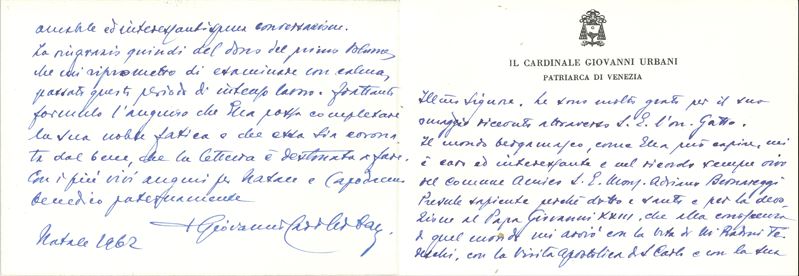 IL CARDINALE GIOVANNI URBANI
PATRIARCA DI VENEZIA
Ill.mo Signore. Le sono molto grato per il suo
omaggio ricevuto attraverso S. E. l'on. Gatto.
Il mondo bergamasco, come Ella può capire, mi
è caro ed interessante e nel ricordo sempre vivo
del comune Amico S. E. Mons. Adriano Bernareggi
Presule sapiente perchè dotto e santo e per la devo
zione al Papa Giovanni XXIII, che alla conoscenza
di quel mondo mi avviò con la vita di Mr Radini Te
deschi, con la Visita Apostolica di S. Carlo e con la sua
amabile ed interessantissima conversazione.
La ringrazio quindi del dono del primo Volume,
che mi riprometto di esaminare con calma,
passato questo periodo di intenso lavoro. Frattanto
formulo l'augurio che Ella possa completare
la sua nobile fatica e che essa sia corona
ta dal bene, che la lettura è destinata a fare.
Con i più vivi auguri per Natale e Capodanno
benedico paternamente
+ Giovanni Card. Urbani
Natale 1962